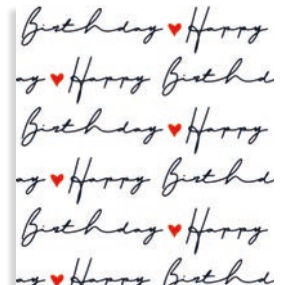 Birthday ♥ Happy
ay ♥ Happy Birthd
Birthday ♥ Happy
ay ♥ Happy Birthd
Birthday ♥ Happy
ay ♥ Happy Birthd